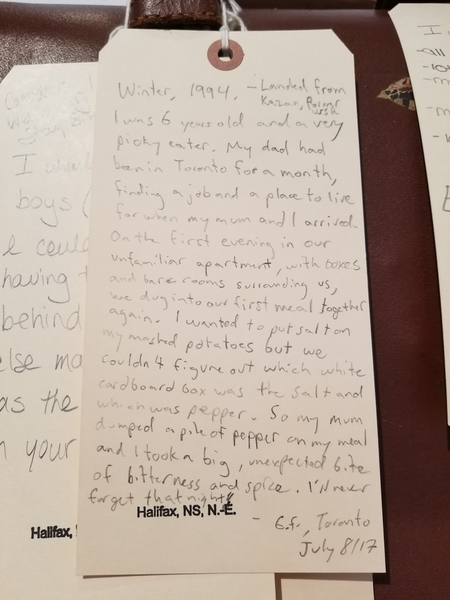 boys (
could
having
behind
else ma
as the
your
Halifax,
Winter, 1994. - Landed from
Kazan,
I was 6 years old and a very
picky eater. My dad had
been in Toronto for a month,
finding a job and a place to live
for when my mum and I arrived.
On the first evening in our
unfamiliar apartment, with boxes
and bare rooms surrounding us,
we dug into our first meal together
again. I wanted to put salt on
my mashed potatoes but we
couldn't figure out which white
cardboard box was the salt and
which was pepper. So my mum
dumped a pile of pepper on my meal
and I took a big, unexpected bite
of bitterness and spice. I'll never
forget that night!
Halifax, NS, N.-É.
- G.F., Toronto
July 8/17
I